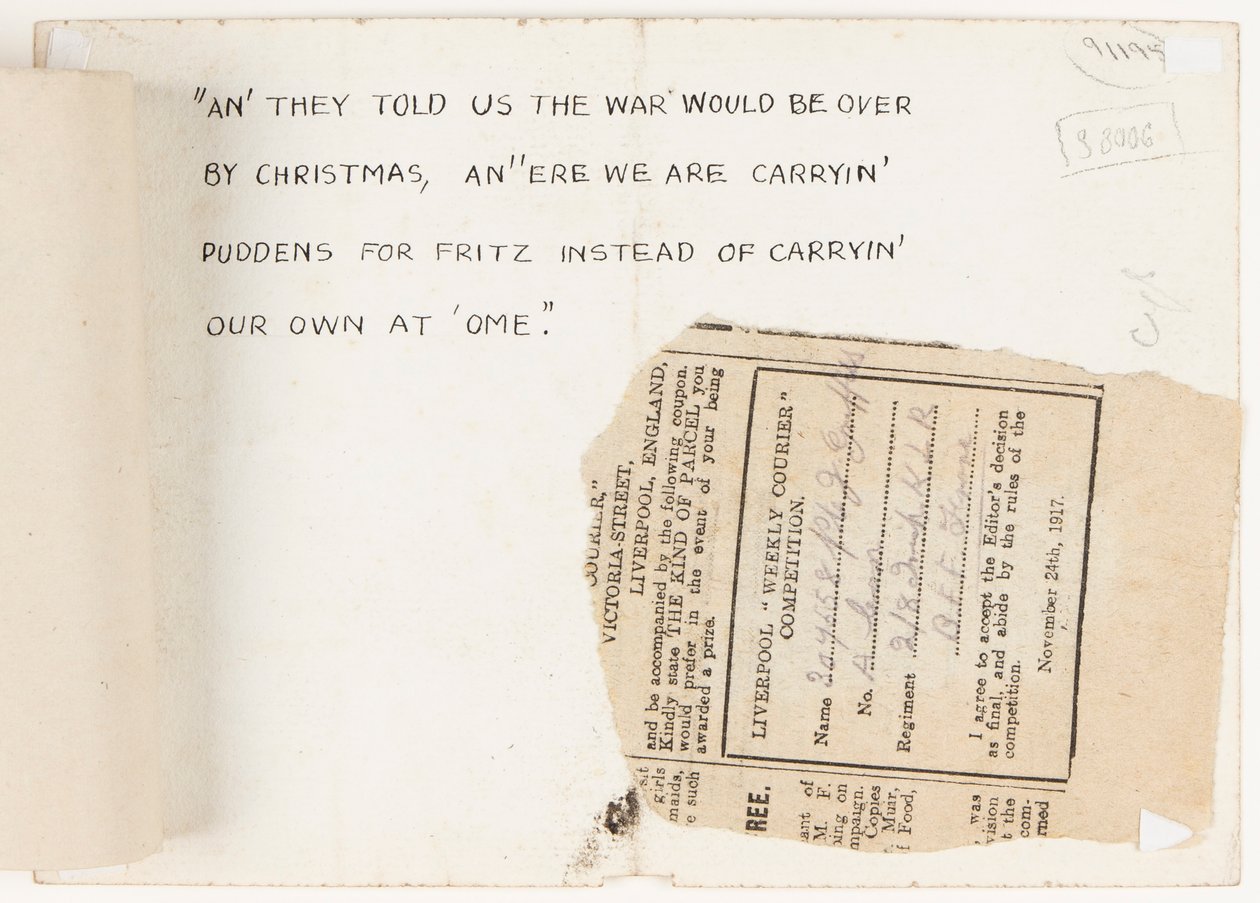 "AN' THEY TOLD US THE WAR WOULD BE OVER
BY CHRISTMAS, AN' 'ERE WE ARE CARRYIN'
PUDDENS FOR FRITZ INSTEAD OF CARRYIN'
OUR OWN AT 'OME."
91195
S 8006
VICTORIA-STREET,
LIVERPOOL, ENGLAND,
and be accompanied by the following coupon.
Kindly state THE KIND OF PARCEL you
would prefer in the event of your being
awarded a prize.
LIVERPOOL "WEEKLY COURIER"
COMPETITION.
Name
No.
Regiment 2/8 K L R
B.E.F.
I agree to accept the Editor's decision
as final, and abide by the rules of the
competition.
November 24th, 1917.
girls
maids,
such
REE.
of
M. F.
on
Copies
Muar,
Food,
was
the